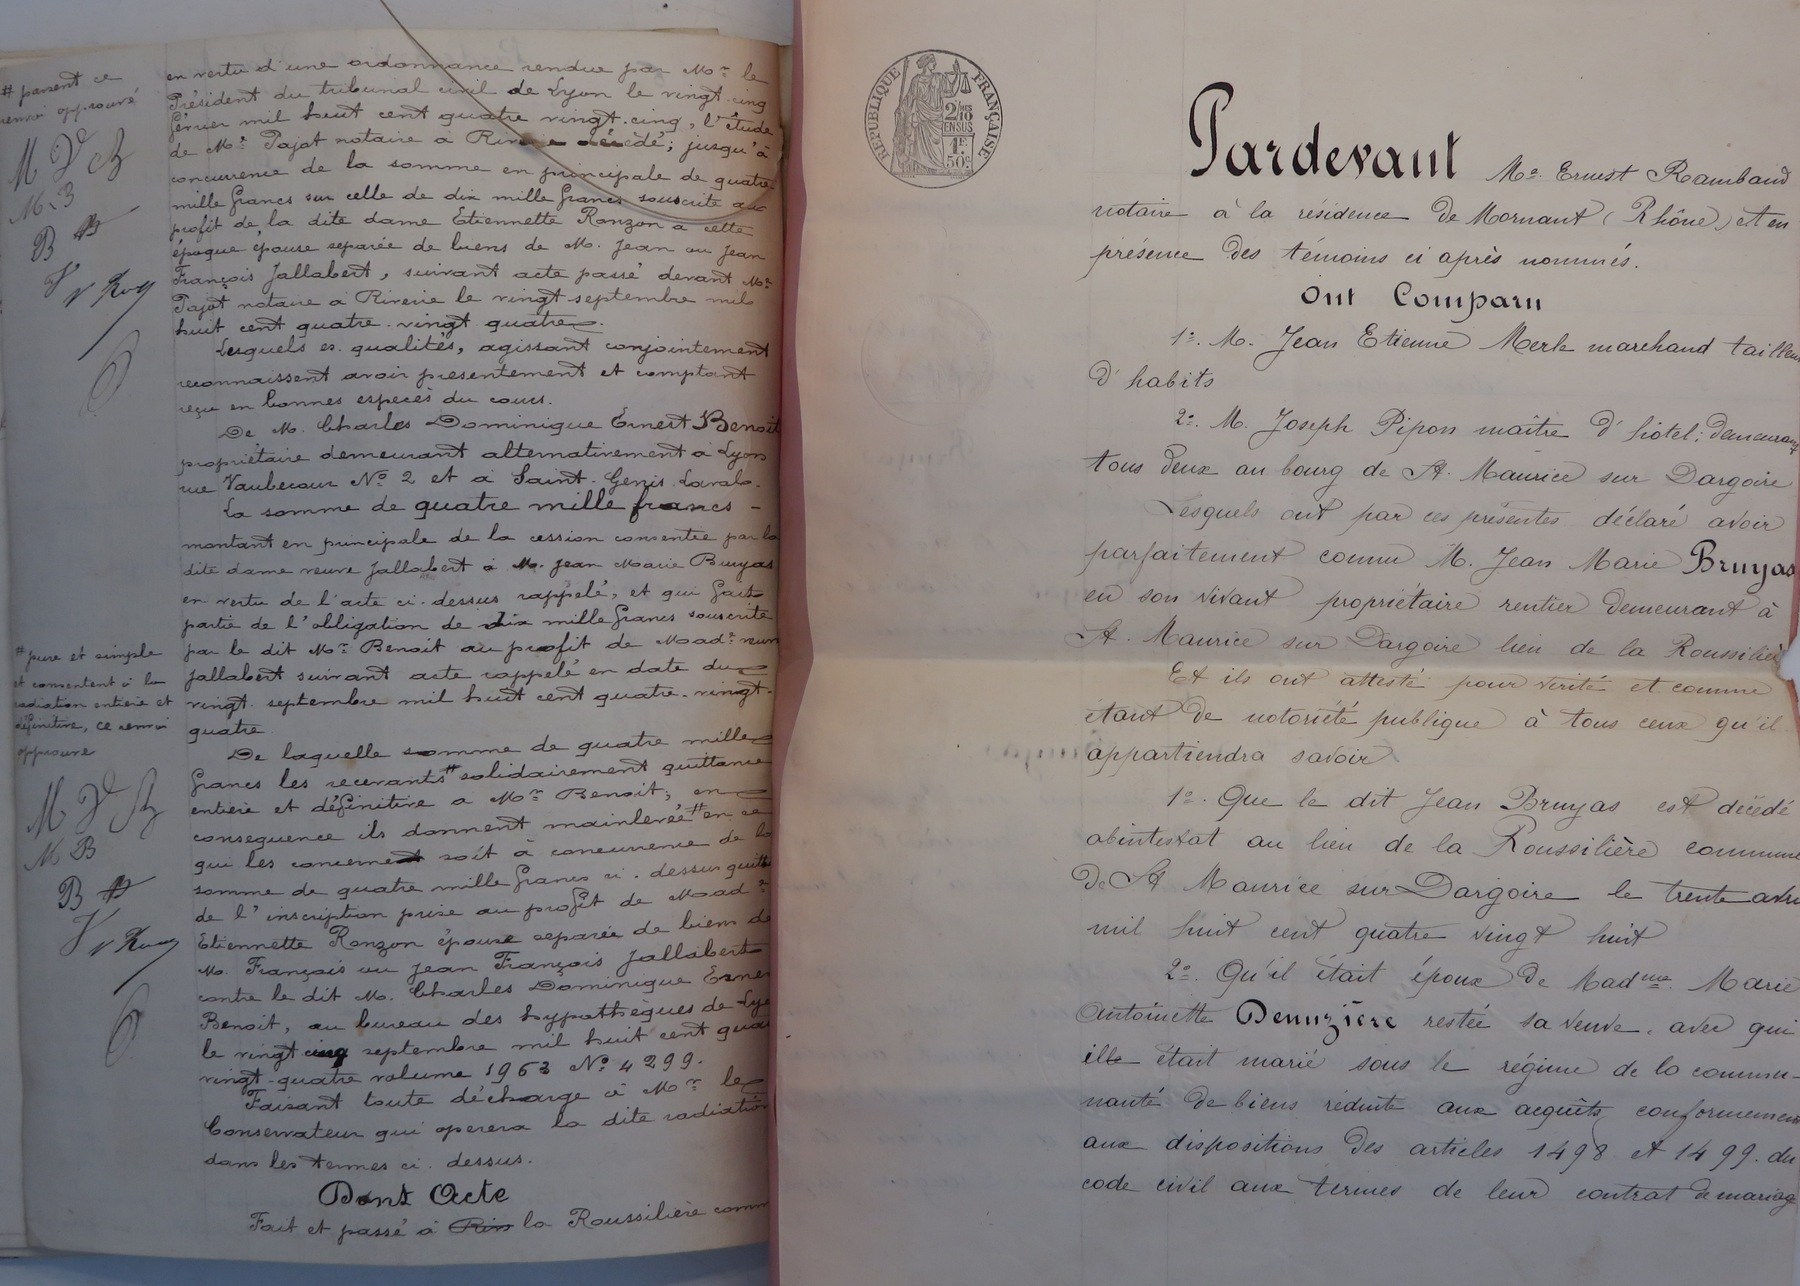 # parsent ce
renvoi approuvé
en vertu d'une ordonnance rendue par Mr le
Président du tribunal civil de Lyon le vingt-cinq
février mil huit cent quatre vingt-cinq, l'étude
de Me Pajot notaire à décédé; jusqu'à
concurrence de la somme en principale de quatre
mille francs sur celle de dix mille francs souscrite au
profit de la dite dame Etiennette Ronzon à cette
époque épouse separée de biens de M. Jean ou Jean
François Jallabert, suivant acte passé devant Me
Pajot notaire à Riverie le vingt-septembre mil
huit cent quatre-vingt quatre.
Lesquels es. qualités, agissant conjointement
reconnaissent avoir presentement et comptant
reçu en bonnes especès du cours.
De M. Charles Dominique Ernest Benoit
propriétaire demeurant alternativement à Lyon
rue Vaubecour No 2 et à Saint-Genis Laval.
La somme de quatre mille francs -
montant en principale de la cession consentie par la
dite dame veuve Jallabert à M. Jean Marie Bruyas
en vertu de l'acte ci-dessus rappelé, et qui fait
partie de l'obligation de dix mille francs souscrite
par le dit Mr Benoit au profit de Made veuve
Jallabert suivant acte rappelé en date du
vingt-septembre mil huit cent quatre-vingt-
quatre
De laquelle somme de quatre mille
francs les recevants # solidairement quittance
entière et définitive a Mr Benoit; en
consequence ils donnent mainlevée # en ce
qui les concernent soit à concurrence de la
somme de quatre mille francs ci-dessus
de l'inscription prise au profit de Made
Etiennette Ronzon épouse separée de biens de
M. François ou Jean François Jallabert
contre le dit M. Charles Dominique Ernest
Benoit, au bureau des hypothèques de Lyon
le vingt cinq septembre mil huit cent quatre
vingt-quatre volume 1963 No 4299.
Faisant toute décharge à Mr le
Conservateur qui operera la dite radiation
dans les termes ci-dessus.
Dont Acte
Fait et passé à la Roussilière
M B
B
# pure et simple
et consentent à la
radiation entière et
définitive, ce renvoi
approuvé
M B
B
RÉPUBLIQUE FRANÇAISE
2/10
EN SUS
1F
50c
Pardevant Me Ernest Rambaud
notaire à la résidence de Mornant (Rhône) et en
présence des témoins ci après nommés.
Ont Comparu
1o. M. Jean Etienne Merle marchand tailleur
d'habits
2o. M. Joseph Pipon maître d'hôtel; demeurant
tous deux au bourg de St. Maurice sur Dargoire
Lesquels ont par ces présentes déclaré avoir
parfaitement connu M. Jean Marie Bruyas
en son vivant propriétaire rentier demeurant à
St. Maurice sur Dargoire lieu de la Roussilière
Et ils ont attesté pour vérité et comme
étant de notoriété publique à tous ceux qu'il
appartiendra savoir
1o. Que le dit Jean Bruyas est décédé
abintestat au lieu de la Roussilière commune
de St Maurice sur Dargoire le trente avril
mil huit cent quatre vingt huit
2o. Qu'il était époux de Madme. Marie
Antoinette Denuzière restée sa veuve, avec qui
était marié sous le régime de la commu-
nauté de biens réduite aux acquêts, conformement
aux dispositions des articles 1498 et 1499. du
code civil aux termes de leur contrat de mariage